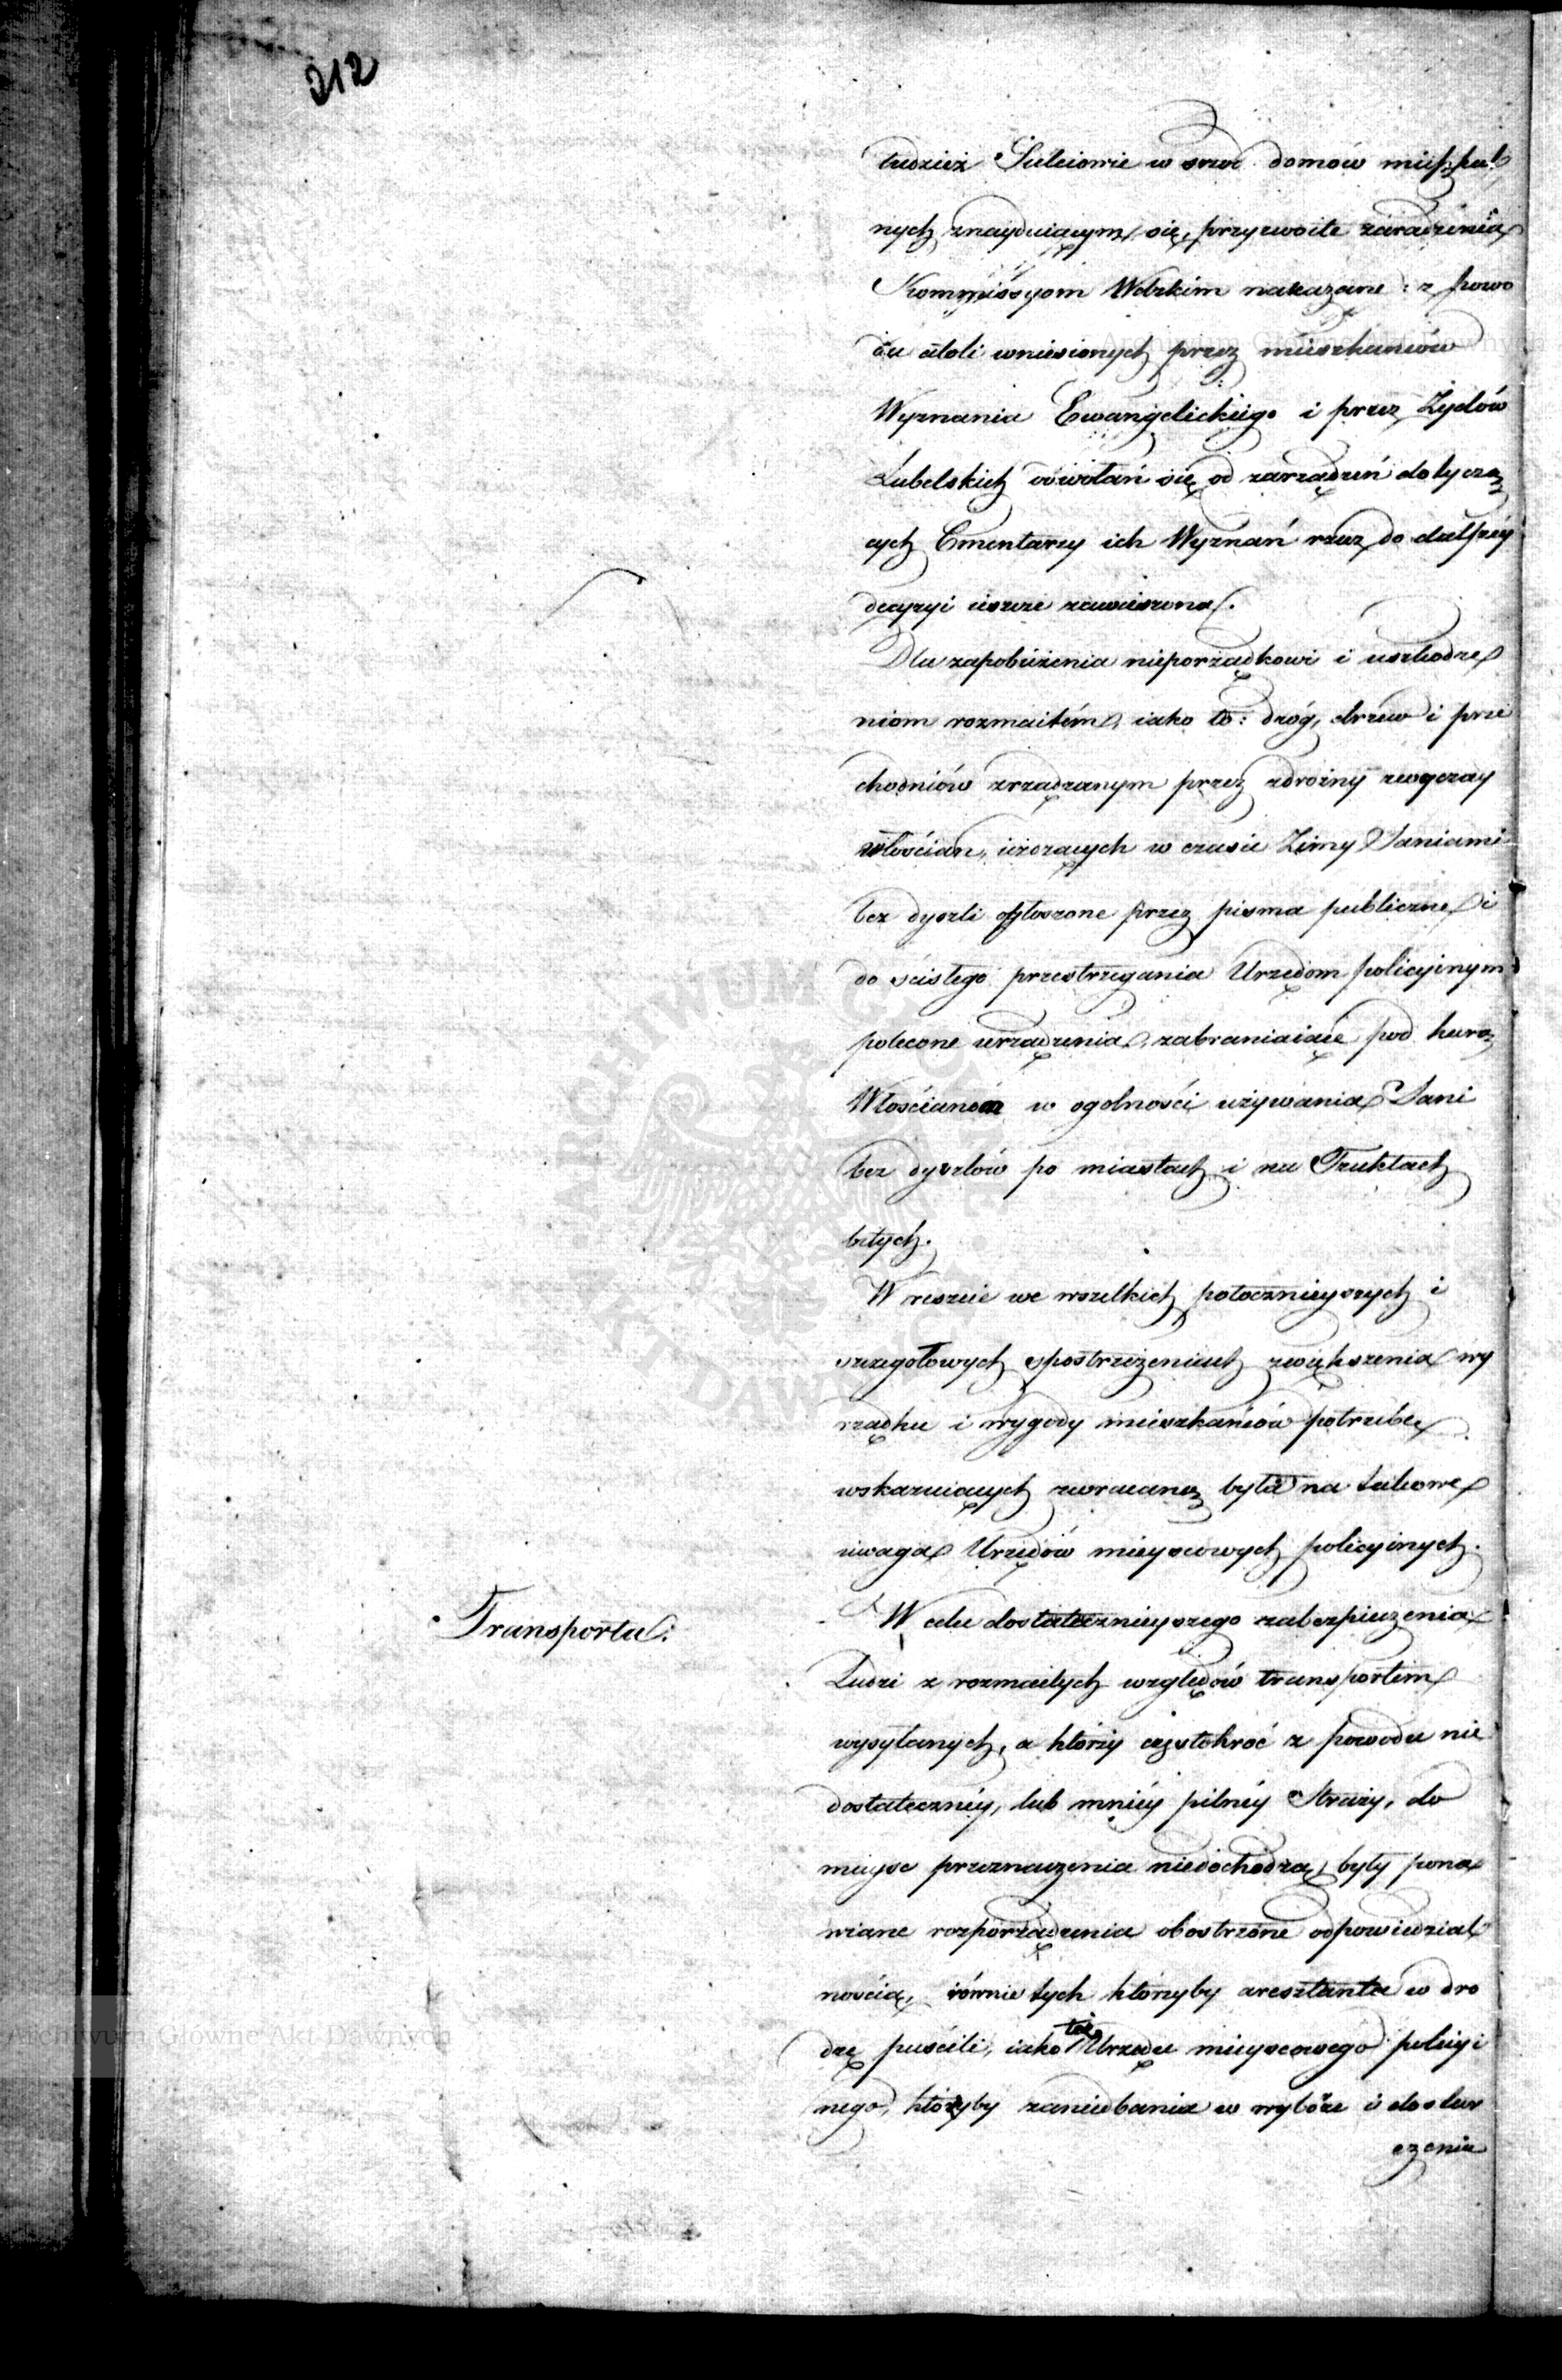 212
tudzież Suleiowie w śrzod domów mieszkal
nych znayduiącym się, przyzwoite zaradzenia
Kommissyom Wdzkim nakazane: z powo
du atoli wniesionych przez mieszkańców
Wyznania Ewangelickiego i przez Żydów
Lubelskich odwołań się od zarządzeń dotyczą
cych Cmentarzy ich Wyznań rzecz do dalszéy
decyzyi ieszcze zawieszona.
Dla zapobieżenia nieporządkowi i uszkodze
niom rozmaitém, iako to: dróg, drzew i prze
chodniów zrządzanym przez zdrożny zwyczay
włościan, ieżdzących w czasie Zimy Saniami
bez dyszli ogłoszone przez pisma publiczne i
do ścisłego przestrzegania Urzędom policyinym
polecone urządzenia, zabraniaiące pod karą
Włościanom w ogolności używania Sani
bez dyszlów po miastach i na Traktach
bitych.
W reszcie we wszelkich potocznieyszych i
szczegołowych spostrzeżeniach zwiększenia
rządku i wygody mieszkańców potrzebę
wskazuiących zwracaną była na takowe
uwaga Urzędów mieyscowych policyinych.
Transporta.
W celu dostatecznieyszego zabezpieczenia
Ludzi z rozmaitych względów transportem
wysyłanych, a którzy częstokroć z powodu nie
dostatecznéy, lub mniéy pilnéy Straży, do
mieysc przeznaczenia niedochodzą, były pona
wiane rozporządzenia obostrzone odpowiedzial
nością, równie tych którzyby aresztanta w dro
dze puścili, iako też Urzędu mieyscowego policyi
nego, któryby zaniedbania w wyborze i dostar
czenia